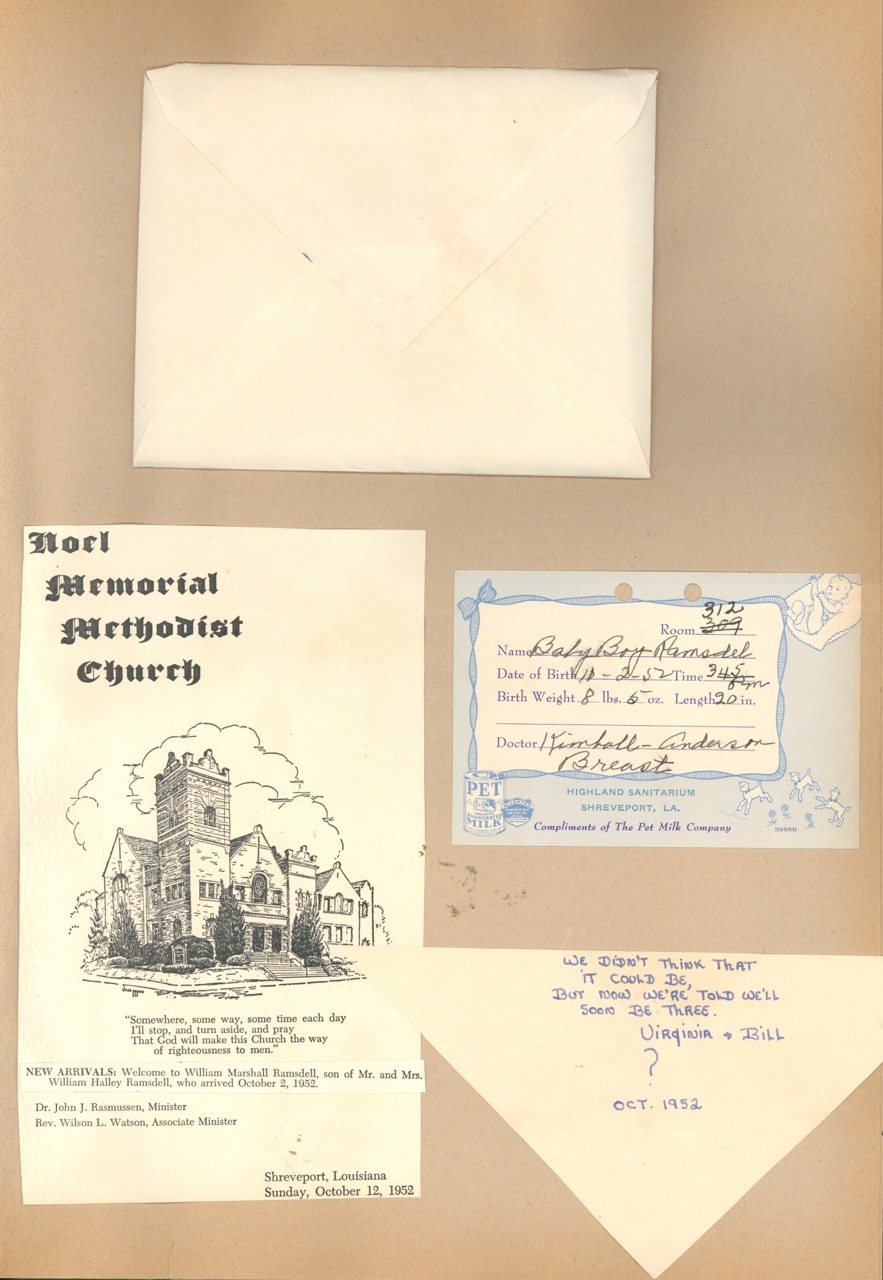 Noel
Memorial
Methodist
Church
"Somewhere, some way, some time each day
I'll stop, and turn aside, and pray
That God will make this Church the way
of righteousness to men."
NEW ARRIVALS: Welcome to William Marshall Ramsdell, son of Mr. and Mrs.
William Halley Ramsdell, who arrived October 2, 1952.
Dr. John J. Rasmussen, Minister
Rev. Wilson L. Watson, Associate Minister
Shreveport, Louisiana
Sunday, October 12, 1952
312
Room 309
Name Baby Boy Ramsdel
Date of Birth 10-2-52 Time 345 pm
Birth Weight 8 lbs. 5 oz. Length 20 in.
Doctor Kimball-Anderson
Breast
PET
EVAPORATED
MILK
HIGHLAND SANITARIUM
SHREVEPORT, LA.
Compliments of The Pet Milk Company
3988B
WE DIDN'T THINK THAT
IT COULD BE,
BUT NOW WE'RE TOLD WE'LL
SOON BE THREE.
VIRGINIA + BILL
?
OCT. 1952